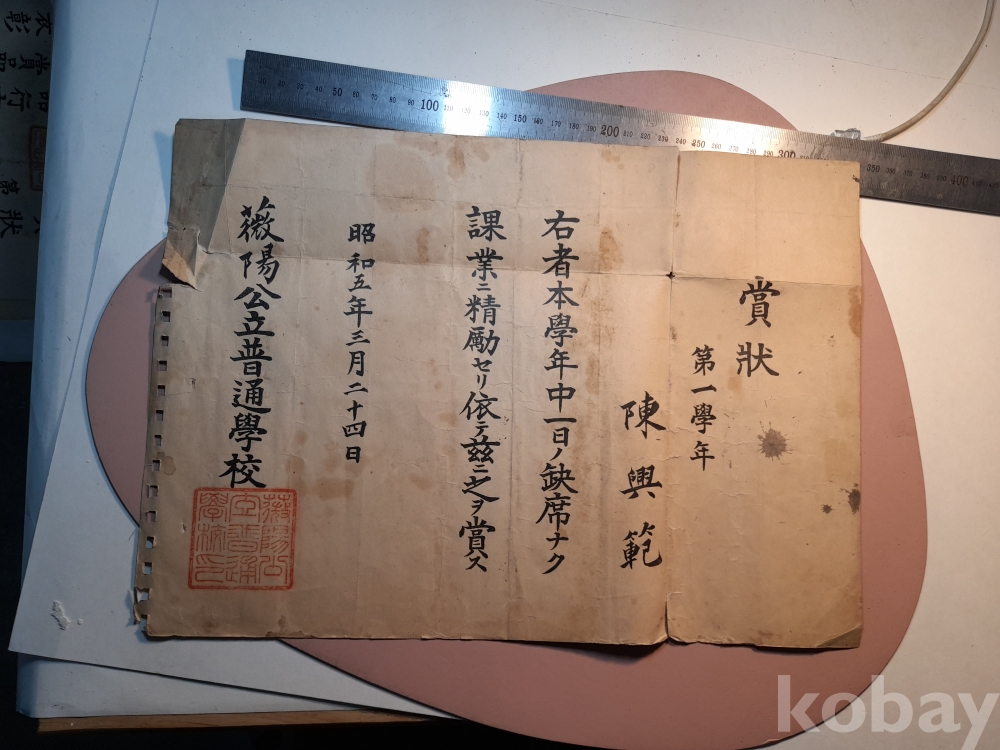 賞狀
第一學年
陳興範
右者本學年中一日ノ缺席ナク
課業ニ精勵セリ依テ茲ニ之ヲ賞ス
昭和五年三月二十四日
薇陽公立普通學校
薇陽公
立普通
學校印
50
100
150
200
250
300
350
400
kobay